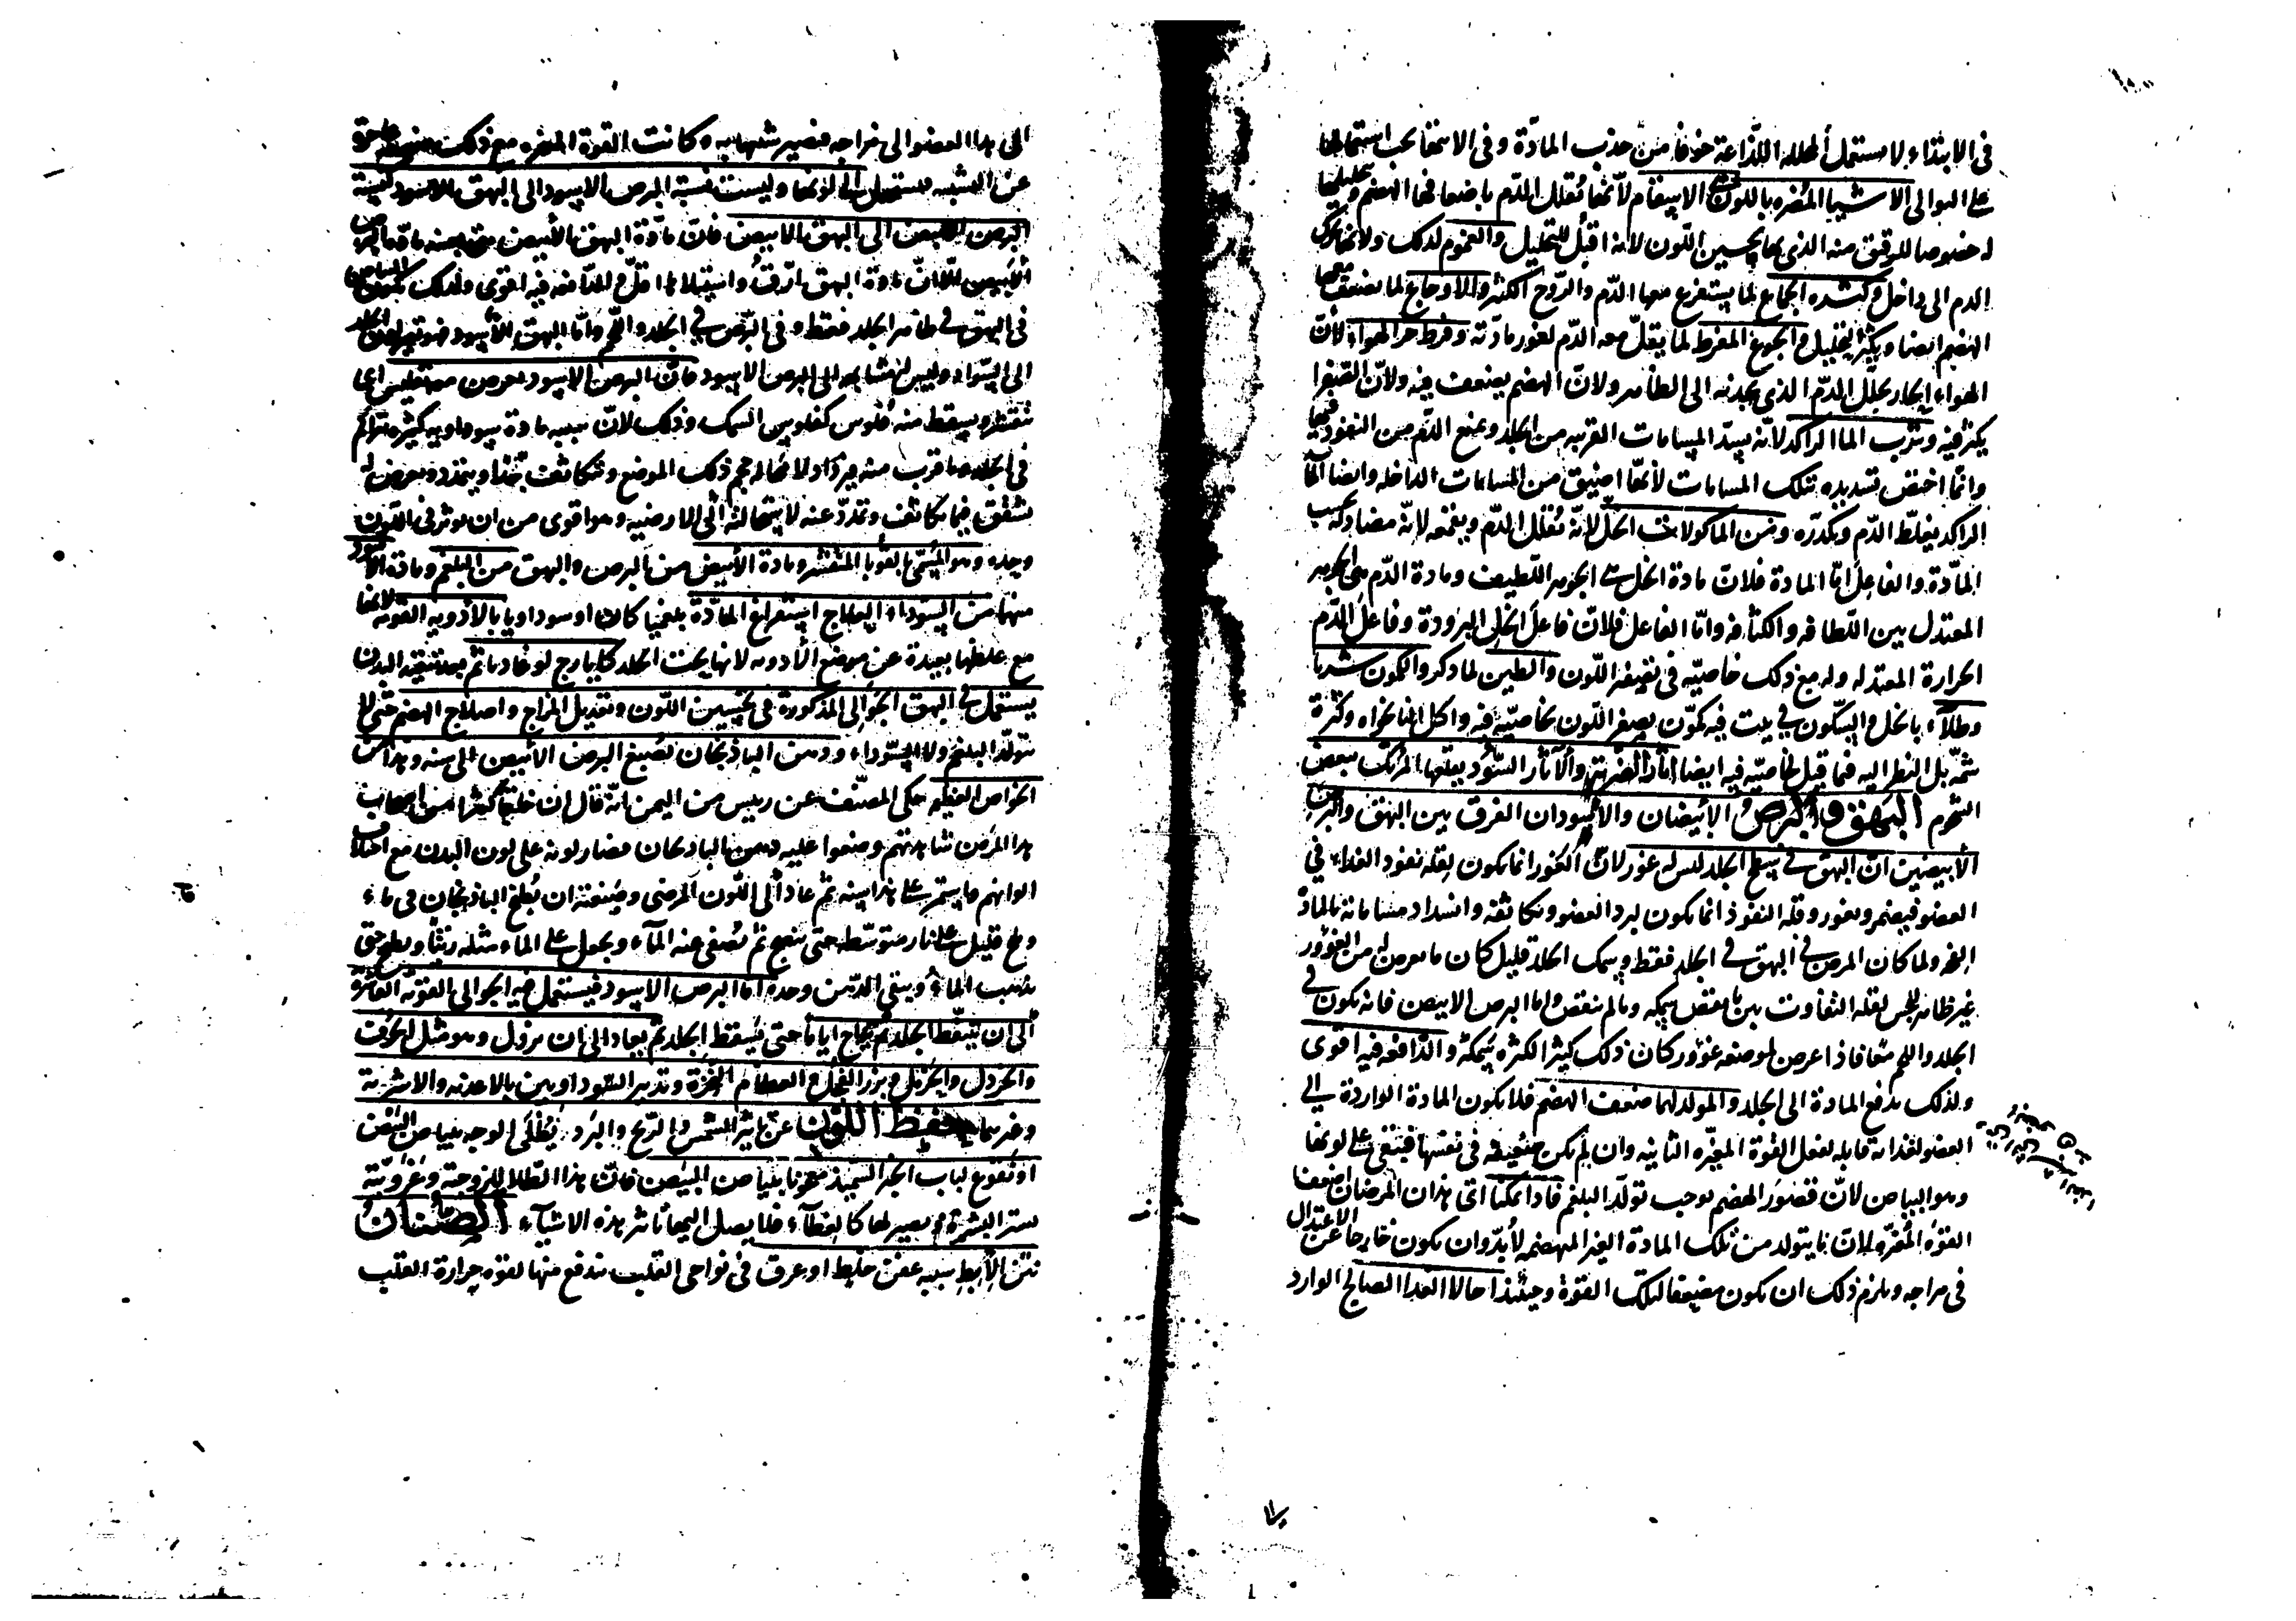 في الابتداء لا يستعمل المحللة اللذاعة خوفا من جذب المادة وفي الانتهاء يجب استعمالها
على التوالي الاشياء المضرة باللون الاسقام لانها تقلل الدم باضعافها الهضم وتحليلها
له خصوصا للرقيق منه الذي بها تحسين اللون لانه اقبل للتحليل والغموم لذلك ولانها تحرك
الدم الى داخل وكثرة الجماع لما يستفرغ معها الدم والروح الكثير والاوجاع لما يضعف معها
الهضم ايضا ويكثر التحليل والجوع المفرط لما يقل معه الدم لعوز مادته وفرط حر الهواء لان
الهواء الحار يحلل الدم الذي يجذبه الى الظاهر ولان الهضم يضعف فيه ولان الصفرا
يكثر فيه وشرب الماء الراكد لانه يسد المسامات القريبة من الجلد ويمنع الدم من النفوذ فيها
وانما اختص تسديده بتلك المسامات لانها اضيق من المسامات الداخلة وايضا الماء
الراكد يغلظ الدم ويكدره ومن الماكولات الخل لانه يقلل الدم ويقمعه لانه مضاد له بحسب
المادة والفاعل اما المادة فلان مادة الخل هي الجوهر اللطيف ومادة الدم هي الجوهر
المعتدل بين اللطافة والكثافة واما الفاعل فلان فاعل الخل البرودة وفاعل الدم
الحرارة المعتدلة وله مع ذلك خاصية في تصفير اللون والطين لما ذكر والكمون شربا
وطلاء بالخل والسكون في بيت فيه كمون يصفر اللون بخاصية فيه واكل النانخواه وكثرة
شمه بل النظر اليه فيما قيل لخاصية فيه ايضا آثار الضربة والآثار السود يقلعها المرتك ببعض
الشحوم البهق والبرص الابيضان والاسودان الفرق بين البهق والبرص
الابيضين ان البهق في سطح الجلد ليس له غور لان الغور انما يكون لقلة نفوذ الغذاء في
العضو فيضمر ويغور وقلة النفوذ انما يكون لبرد العضو وتكاثفه وانسداد مساماته بالمادة
الفجة ولما كان المرض في البهق في الجلد فقط وسمك الجلد قليل كان ما يعرض له من الغؤور
غير ظاهر للحس لقلة التفاوت بين ما نقص سمكه وما لم ينقص واما البرص الابيض فانه يكون في
الجلد واللحم معا فاذا عرض لموضعه غؤور كان ذلك كثيرا لكثرة سمكه والدافعة فيه اقوى
ولذلك يدفع المادة الى الجلد والمولد لهما ضعف الهضم فلا يكون المادة الواردة الى
العضو لغذائه قابلة لفعل القوة المغيرة الثانية وان لم يكن ضعيفة في نفسها فيبقى على لونها
وهو البياض لان قصور الهضم يوجب تولد البلغم فاذا تمكنا اي هذان المرضان اضعفا
القوة المغيرة لان ما يتولد من تلك المادة الغير المنهضمة لا بد وان يكون خارجا عن الاعتدال
في مزاجه ويلزم ذلك ان يكون مضعفا لتلك القوة وحينئذ احالا الغذا الصالح الوارد
الى هذا العضو الى مزاجه فيصير شبيها به وكانت القوة المغيرة مع ذلك
عن التشبيه فيستحيل الى لونها وليست نسبة البرص الاسود الى البهق الاسود كنسبة
البرص الابيض الى البهق الابيض فان مادة البهق الابيض هي بعينه مادة البرص
الابيض الا ان مادة البهق ارق واستيلاءها اقل والدافعة فيه اقوى ولذلك يكون
في البهق في ظاهر الجلد فقط وفي البرص في الجلد واللحم واما البهق الاسود فهو تغير لون الجلد
الى السواد وليس نسبته الى البرص الاسود فان البرص الاسود يعرض معه تفليس اي
تقشر ويسقط منه فلوس كفلوس السمك وذلك لان سببه مادة سوداوية كثيرة تتراكم
في الجلد وما قرب منه حجم ذلك الموضع وتتكاثف ويتمدد ويعرض له
تشقق فيما تكاثف وتمدد عنه لاستحالته الى الارضية وهو اقوى من ان يوثر في اللون
وحده وهو المسمى بالقوبا المتقشر ومادة الابيض من البرص والبهق من البلغم ومادة الاسود
منهما من السوداء العلاج استفراغ المادة بلغميا كان او سوداويا بالادوية القوية لانها
مع غلظها بعيدة عن موضع الادوية لانها تحت الجلد كايارج لوغاديا ثم بعد تنقية البدن
يستعمل في البهق الجوالي المذكورة في تحسين اللون وتعديل المزاج واصلاح الهضم حتى لا
يتولد البلغم ولا السوداء ودهن الباذنجان يصبغ البرص الابيض الى سنه وهذا من
الخواص العظيمة حكى المصنف عن رييس من اليمن انه قال ان خلقا كثيرا من اصحاب
هذا المرض شاهدتهم وضعوا عليه دهن الباذنجان فصار لونه على لون البدن مع اختلاف
الوانهم واستمر على هذا سنة ثم عاد الى اللون المرضي وصنعته ان يطبخ الباذنجان في ماء
وملح قليل على نار متوسطة حتى ينضج ثم يصفى عنه الماء ويجعل على الماء مثله زيتا ويطبخ حتى
يذهب الماء ويبقى الدهن وحده اما البرص الاسود فيستعمل فيه الجوالي القوية القاشرة
الى ان يتنفط الجلد ثم يعالج اياما حتى يسقط الجلد ثم يعاد الى ان يزول وهو مثل الحرف
والخردل والخربق وبزر الفجل والعظام النخرة وتدبير السوداويين بالاغذية والاشربة
وغيرهما حفظ اللون عن تاثير الشمس والريح والبرد يطلى الوجه ببياض البيض
او نقوع لباب الخبز السميذ معجونا ببياض البيض فان هذا الطلا للزوجته وغرويته
يستر البشرة ويصير لها كالغطاء فلا يصل اليها تاثير هذه الاشياء الصنان
نتن الابط سببه عفن خليط او عرق في نواحي القلب يندفع منها لقوة حرارة القلب